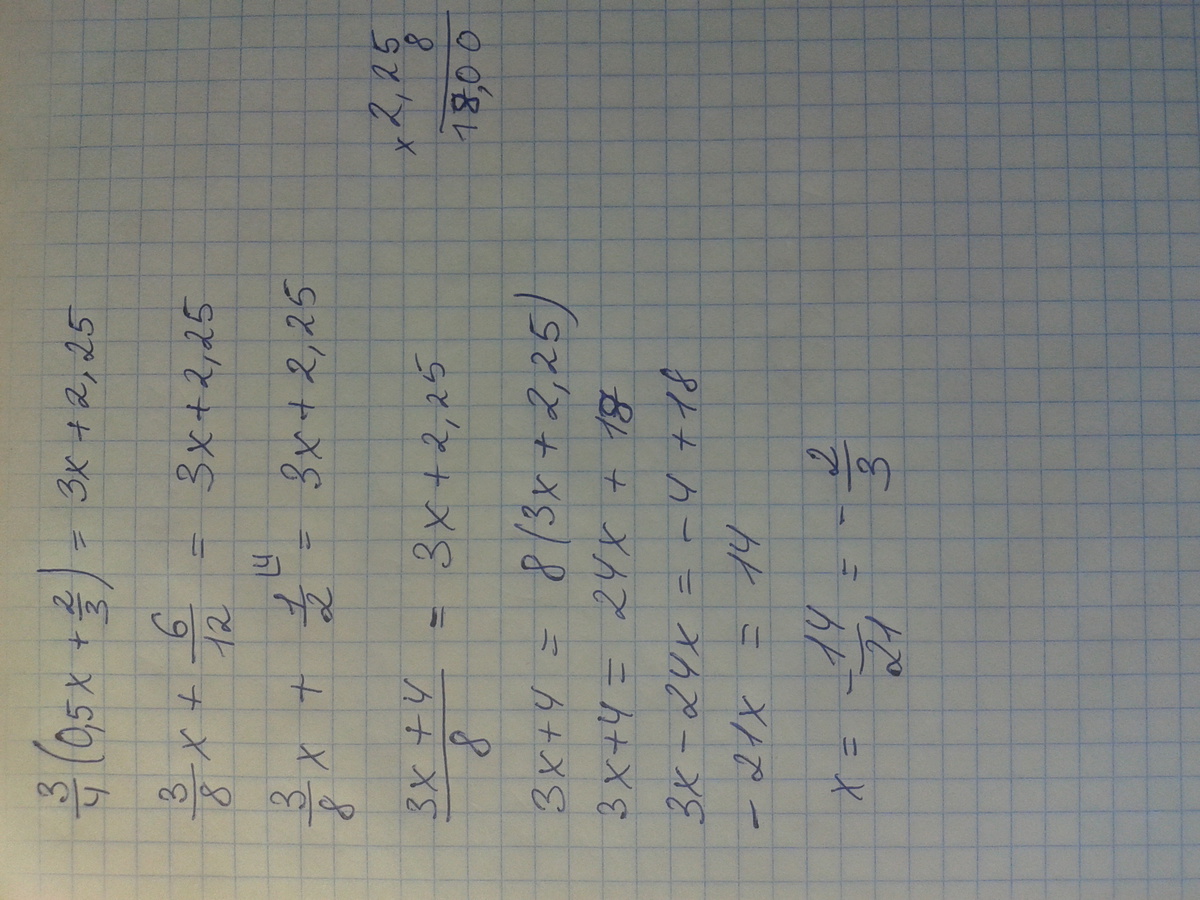 3/4 (0,5x + 2/3) = 3x + 2,25
3/8 x + 6/12 = 3x + 2,25
3/8 x + 1/2 ⌊4 = 3x + 2,25
(3x + 4)/8 = 3x + 2,25
3x + 4 = 8(3x + 2,25)
3x + 4 = 24x + 18
3x - 24x = - 4 + 18
- 21x = 14
x = - 14/21 = - 2/3
x 2,25
8
18,00